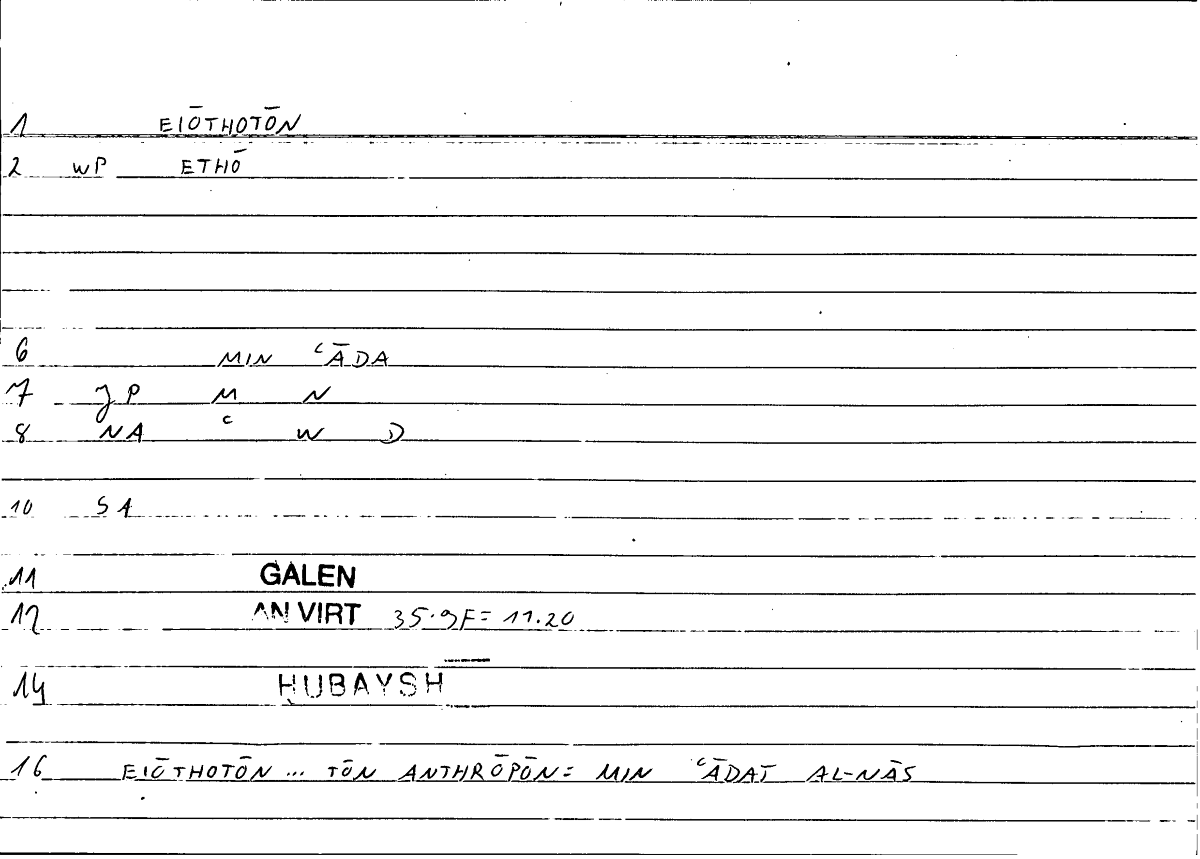 1 EIŌTHOTŌN
2 WP ETHŌ
6 MIN ʿĀDA
7 JP M N
8 NA ʿ W D
10 SA
11 GALEN
12 AN VIRT 35.9F= 11.20
14 ḤUBAYSH
16 EIŌTHOTŌN ... TŌN ANTHRŌPŌN= MIN ʿĀDAT AL-NĀS